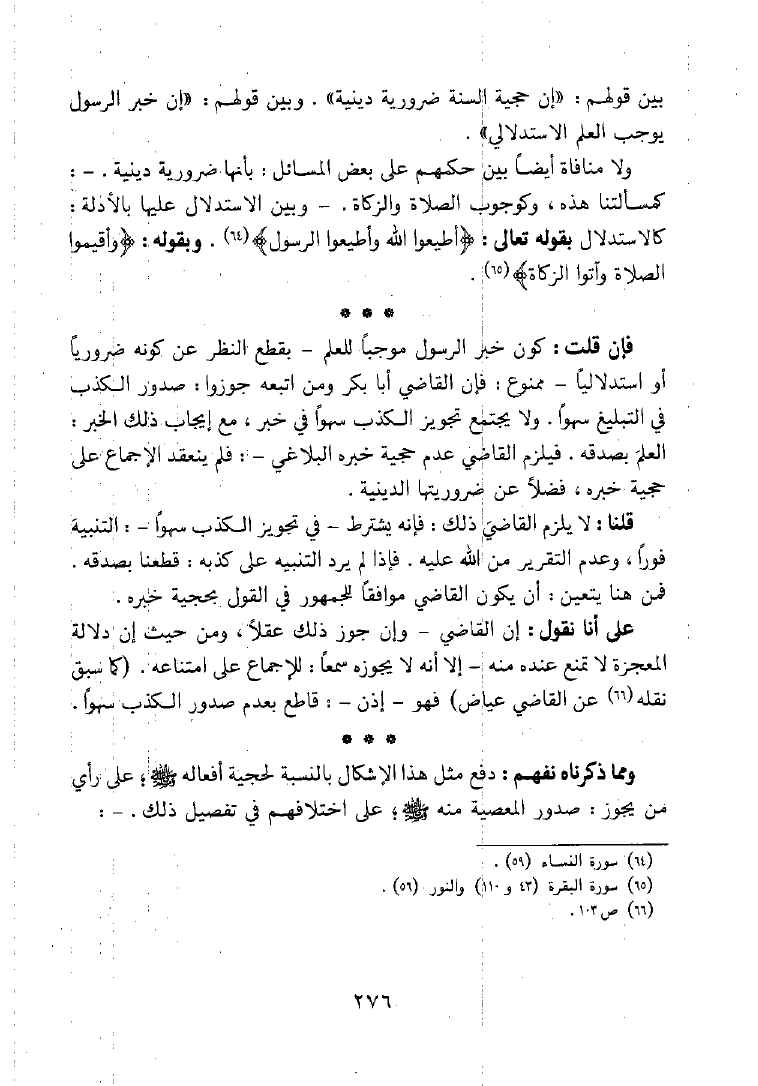 بين قولهم : «إن حجية السنة ضرورية دينية» . وبين قولهم : «إن خبر الرسول
يوجب العلم الاستدلالي» .
ولا منافاة أيضاً بين حكمهم على بعض المسائل : بأنها ضرورية دينية . – :
كمسألتنا هذه ، وكوجوب الصلاة والزكاة . – وبين الاستدلال عليها بالأدلة :
كالاستدلال بقوله تعالى : ﴿أطيعوا الله وأطيعوا الرسول﴾(٦٤) . وبقوله : ﴿وأقيموا
الصلاة وآتوا الزكاة﴾(٦٥) .
* * *
فإن قلت : كون خبر الرسول موجباً للعلم – بقطع النظر عن كونه ضرورياً
أو استدلالياً – ممنوع : فإن القاضي أبا بكر ومن اتبعه جوزوا : صدور الكذب
في التبليغ سهواً . ولا يجتمع تجويز الكذب سهواً في خبر ، مع إيجاب ذلك الخبر :
العلمَ بصدقه . فيلزم القاضي عدم حجية خبره البلاغي – : فلم ينعقد الإجماع على
حجية خبره ، فضلاً عن ضروريتها الدينية .
قلنا : لا يلزم القاضيَ ذلك : فإنه يشترط – في تجويز الكذب سهواً – : التنبية
فوراً ، وعدم التقرير من الله عليه . فإذا لم يرد التنبيه على كذبه : قطعنا بصدقه .
فمن هنا يتعين : أن يكون القاضي موافقاً للجمهور في القول بحجية خبره .
على أنا نقول : إن القاضي – وإن جوز ذلك عقلاً ، ومن حيث إن دلالة
المعجزة لا تمنع عنده منه – إلا أنه لا يجوزه سمعاً : للإجماع على امتناعه . (كما سبق
نقله(٦٦) عن القاضي عياض) فهو – إذن – : قاطع بعدم صدور الكذب سهواً .
* * *
ومما ذكرناه نفهم : دفع مثل هذا الإشكال بالنسبة لحجية أفعاله ﷺ ؛ على رأي
من يجوز : صدور المعصية منه ﷺ ؛ على اختلافهم في تفصيل ذلك . – :
(٦٤) سورة النساء (٥٩) .
(٦٥) سورة البقرة (٤٣ و ١١٠) والنور (٥٦) .
(٦٦) ص ١٠٣ .
٢٧٦